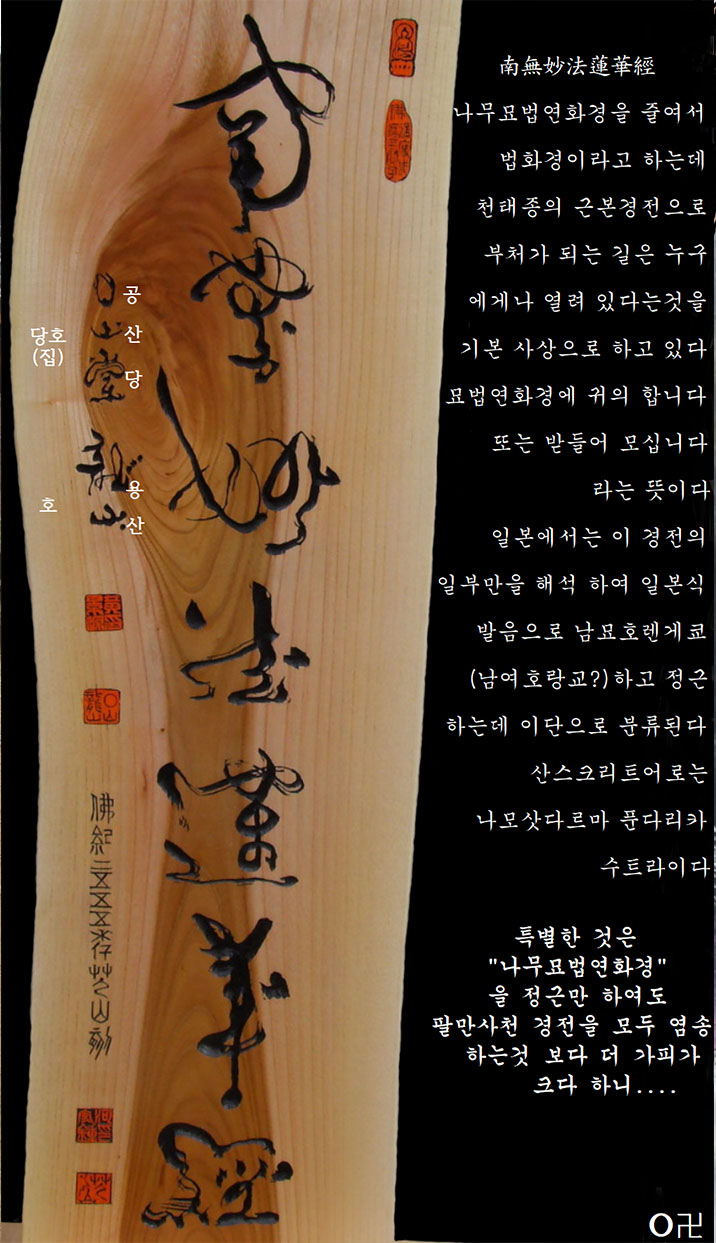 南無妙法蓮華經
공
산
당
당호
(집)
용
산
호
佛紀二五五五
南無妙法蓮華經
나무묘법연화경을 줄여서
법화경이라고 하는데
천태종의 근본경전으로
부처가 되는 길은 누구
에게나 열려 있다는것을
기본 사상으로 하고 있다
묘법연화경에 귀의 합니다
또는 받들어 모십니다
라는 뜻이다
일본에서는 이 경전의
일부만을 해석 하여 일본식
발음으로 남묘호렌게쿄
(남여호랑교?)하고 정근
하는데 이단으로 분류된다
산스크리트어로는
나모삿다르마 푼다리카
수트라이다
특별한 것은
"나무묘법연화경"
을 정근만 하여도
팔만사천 경전을 모두 염송
하는것 보다 더 가피가
크다 하니....
O卍